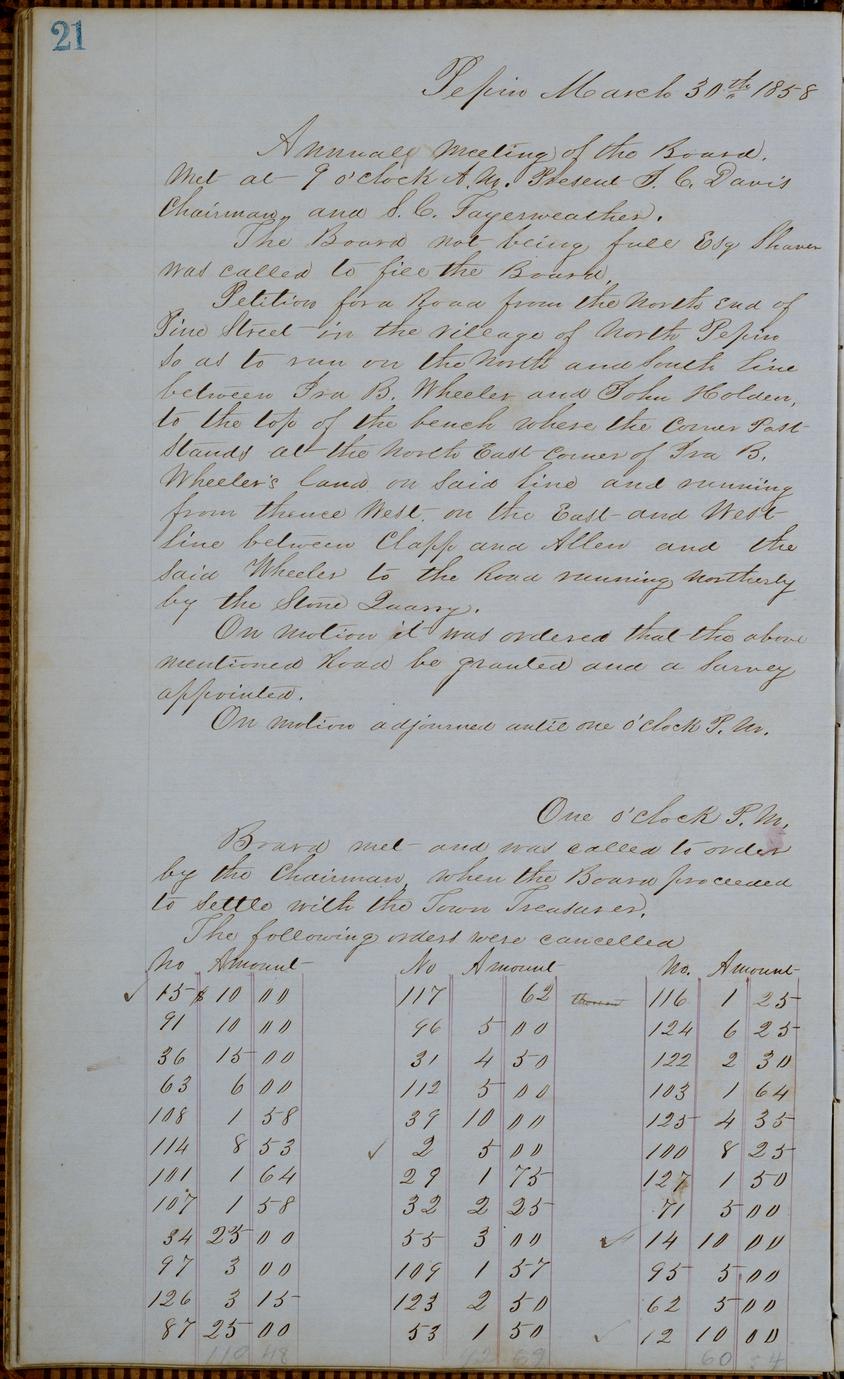 21
Pepin March 30th 1858
Annual Meeting of the Board.
Met at 9 o'clock A.M. Present S. C. Davis
Chairman, and S. C. Fayerweather.
The Board not being full Esq Shaver
was called to fill the Board.
Petition for a Road from the North End of
Pine Street in the village of North Pepin
so as to run on the North and South line
between Ira B. Wheeler and John Holden,
to the top of the bench where the Corner Post
Stands at the North East corner of Ira B.
Wheeler's land on said line and running
from thence West on the East and West
line between Clapp and Allen and the
said Wheeler to the Road running Northerly
by the Stone Quarry.
On motion it was ordered that the above
mentioned Road be granted and a Survey
appointed.
On motion adjourned until one o'clock P.M.
One o'clock P.M.
Board met and was called to order
by the Chairman, when the Board proceeded
to settle with the Town Treasurer.
The following orders were cancelled
No Amount No Amount No. Amount
15 $ 10 00 117 62 116 1 25
91 10 00 96 5 00 124 6 25
36 15 00 31 4 50 122 2 30
63 6 00 112 5 00 103 1 64
108 1 58 39 10 00 125 4 35
114 8 53 2 5 00 100 8 25
101 1 64 29 1 75 127 1 50
107 1 58 32 2 25 71 5 00
34 25 00 55 3 00 14 10 00
97 3 00 109 1 57 95 5 00
126 3 15 123 2 50 62 5 00
87 25 00 53 1 50 12 10 00
110 48 42 69 60 54